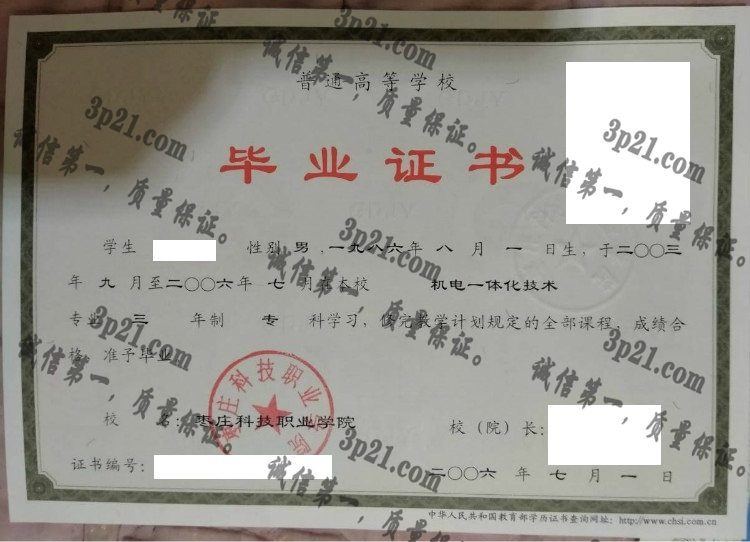 普通高等学校
毕业证书
学生 性别 男 ,一九八六年 八 月 一 日生，于二〇〇三
年 九 月至二〇〇六年 七 月在本校 机电一体化技术
专业 三 年制 专 科学习，修完教学计划规定的全部课程，成绩合
格，准予毕业。
校 名：枣庄科技职业学院
校（院）长：
证书编号：
二〇〇六 年 七 月 一 日
中华人民共和国教育部学历证书查询网址：http://www.chsi.com.cn
枣庄科技职业学院
3p21.com
诚信第一，质量保证。
3p21.com
诚信第一，质量保证。
3p21.com
诚信第一，质量保证。
3p21.com
诚信第一，质量保证。
3p21.com
诚信第一，质量保证。
3p21.com
诚信第一，质量保证。
3p21.com
诚信第一，质量保证。
3p21.com
诚信第一，质量保证。